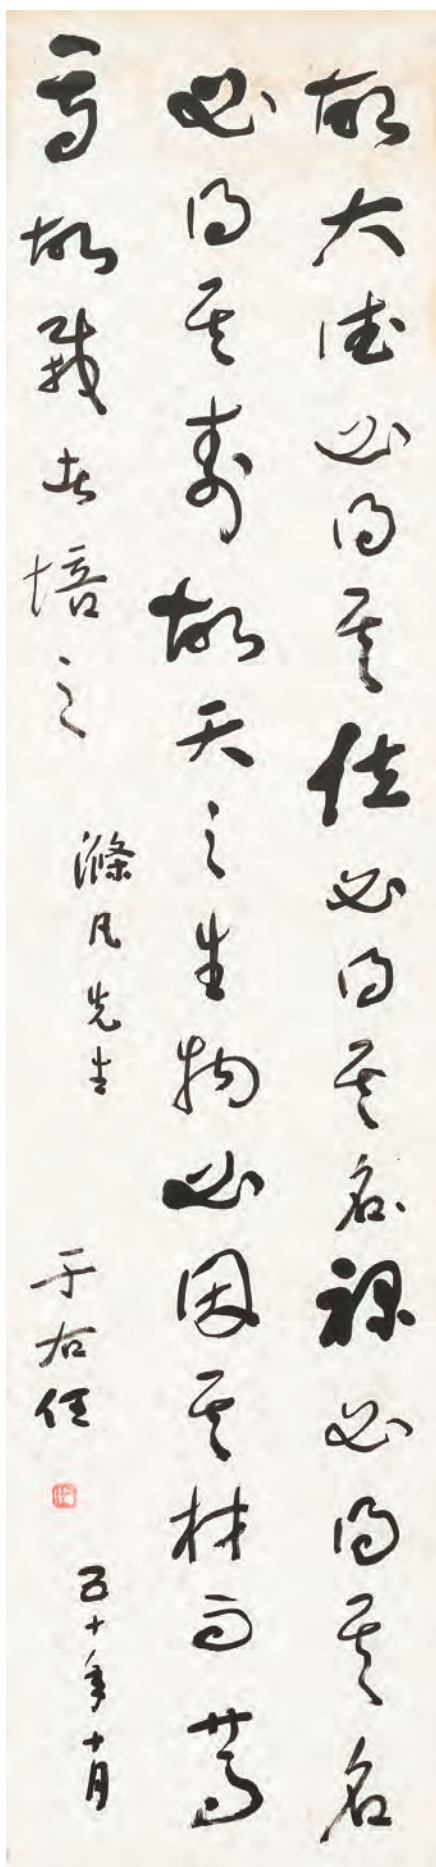 故大德必得其位必得其名祿必得其名
必得其壽故天之生物必因其材而篤
焉故栽者培之
滌凡先生
于右任
五十年十月